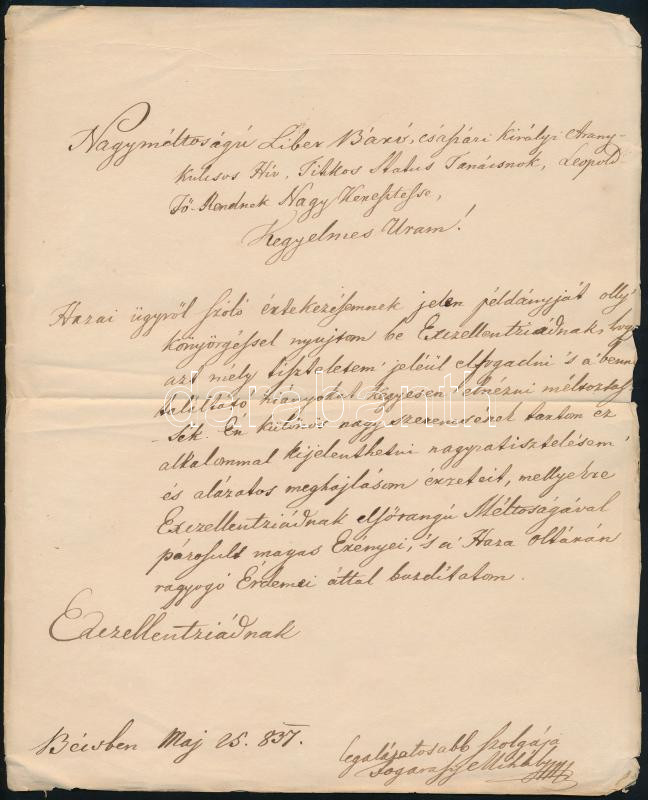 Nagyméltoságú Liber Báró, császári királyi Arany-
kulcsos Hív, Titkos Status Tanácsnok, Leopold-
Fő-Rendnek Nagy Keresztesse,
Kegyelmes Uram!
Hazai ügyről szóló érdekezésemnek jelen példányját olly
könyörgéssel nyujtom be Exczellentziádnak, hogy
azt mély tiszteletem jeléül elfogadni 's a' benne
találtató hiányokat kegyesen elnézni méltoztas-
-sék. Én különös nagy szerencsének tartom ez
alkalommal kijelenthetni nagyratisztelésem'
és alázatos meghajlásom érzeteit, mellyekre
Exczellentziádnak elsőrangú Méltoságával
párosult magas Erényei, 's a' Haza oltárán
ragyogó Érdemei által buzdítatom.
Exczellentziádnak
Bécsben Maj 25. 837.
legalázatosabb szolgája
Fogarasy Mihály
darabanth